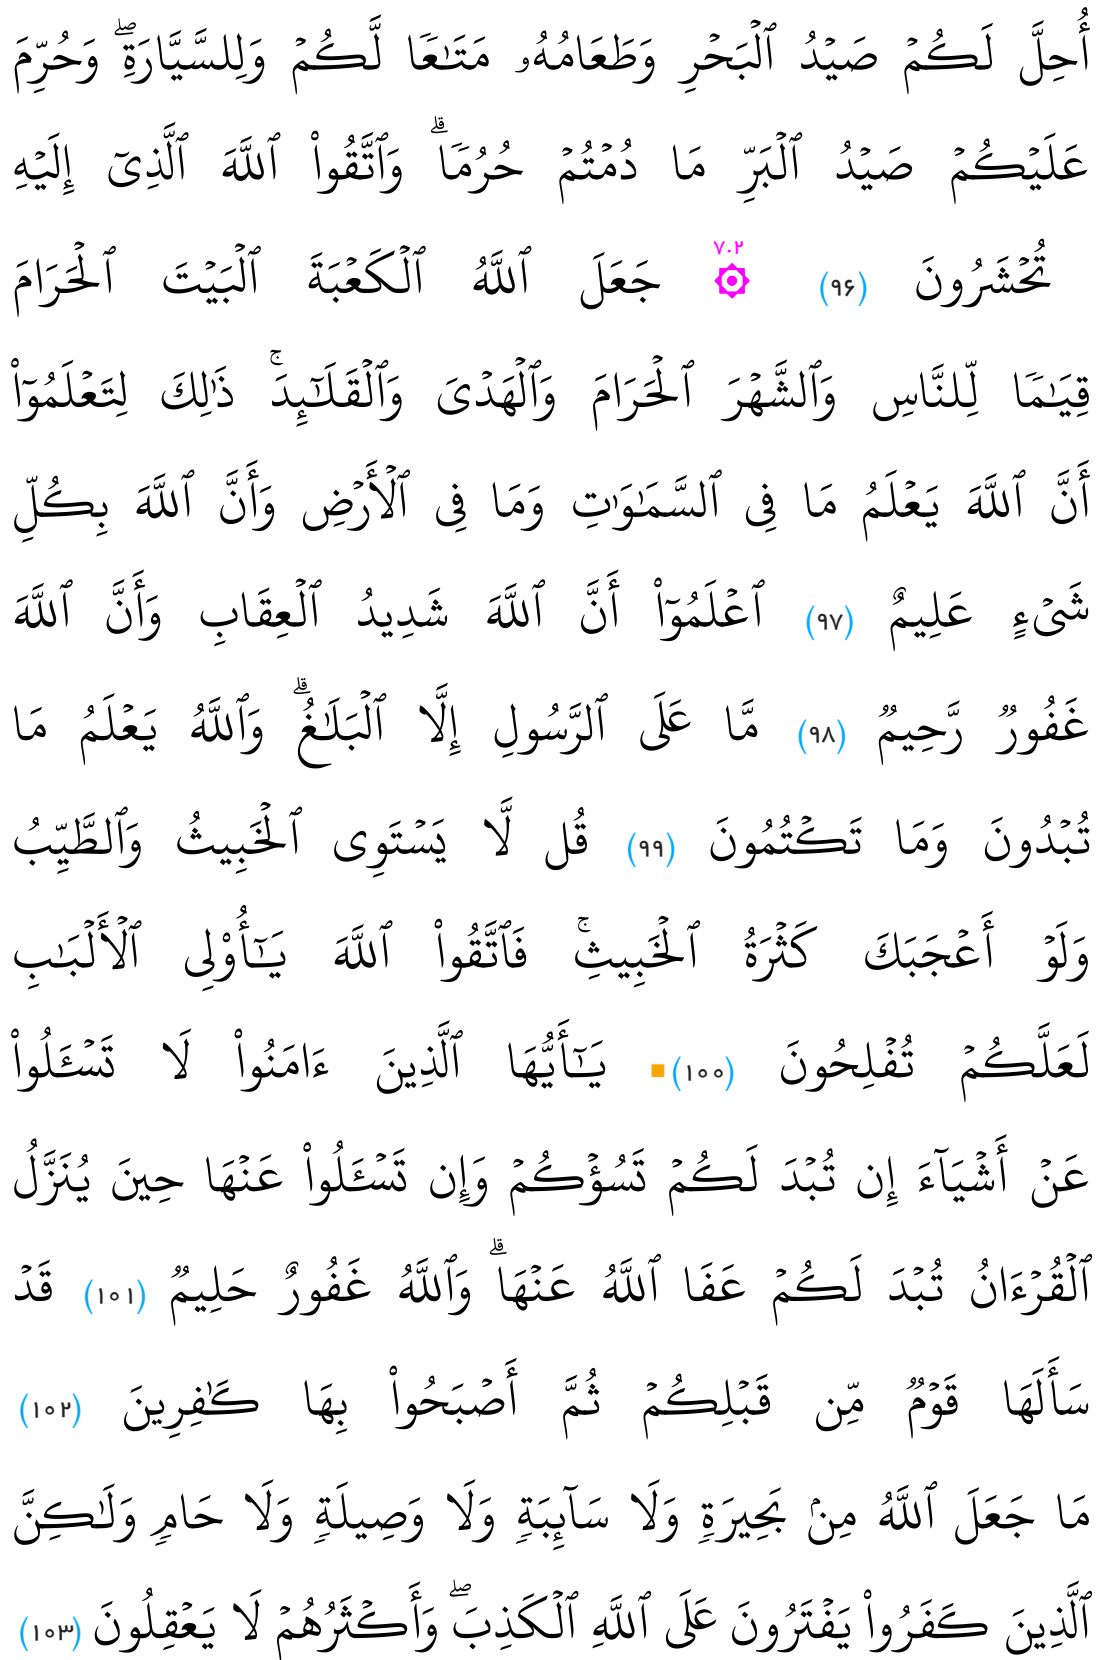 أُحِلَّ لَكُمۡ صَيۡدُ ٱلۡبَحۡرِ وَطَعَامُهُۥ مَتَٰعٗا لَّكُمۡ وَلِلسَّيَّارَةِۖ وَحُرِّمَ
عَلَيۡكُمۡ صَيۡدُ ٱلۡبَرِّ مَا دُمۡتُمۡ حُرُمٗاۗ وَٱتَّقُواْ ٱللَّهَ ٱلَّذِيٓ إِلَيۡهِ
تُحۡشَرُونَ (۹۶) ۷.۲ ۞ جَعَلَ ٱللَّهُ ٱلۡكَعۡبَةَ ٱلۡبَيۡتَ ٱلۡحَرَامَ
قِيَٰمٗا لِّلنَّاسِ وَٱلشَّهۡرَ ٱلۡحَرَامَ وَٱلۡهَدۡيَ وَٱلۡقَلَٰٓئِدَۚ ذَٰلِكَ لِتَعۡلَمُوٓاْ
أَنَّ ٱللَّهَ يَعۡلَمُ مَا فِي ٱلسَّمَٰوَٰتِ وَمَا فِي ٱلۡأَرۡضِ وَأَنَّ ٱللَّهَ بِكُلِّ
شَيۡءٍ عَلِيمٌ (۹۷) ٱعۡلَمُوٓاْ أَنَّ ٱللَّهَ شَدِيدُ ٱلۡعِقَابِ وَأَنَّ ٱللَّهَ
غَفُورٞ رَّحِيمٞ (۹۸) مَّا عَلَى ٱلرَّسُولِ إِلَّا ٱلۡبَلَٰغُۗ وَٱللَّهُ يَعۡلَمُ مَا
تُبۡدُونَ وَمَا تَكۡتُمُونَ (۹۹) قُل لَّا يَسۡتَوِي ٱلۡخَبِيثُ وَٱلطَّيِّبُ
وَلَوۡ أَعۡجَبَكَ كَثۡرَةُ ٱلۡخَبِيثِۚ فَٱتَّقُواْ ٱللَّهَ يَٰٓأُوْلِي ٱلۡأَلۡبَٰبِ
لَعَلَّكُمۡ تُفۡلِحُونَ (۱۰۰) يَٰٓأَيُّهَا ٱلَّذِينَ ءَامَنُواْ لَا تَسۡـَٔلُواْ
عَنۡ أَشۡيَآءَ إِن تُبۡدَ لَكُمۡ تَسُؤۡكُمۡ وَإِن تَسۡـَٔلُواْ عَنۡهَا حِينَ يُنَزَّلُ
ٱلۡقُرۡءَانُ تُبۡدَ لَكُمۡ عَفَا ٱللَّهُ عَنۡهَاۗ وَٱللَّهُ غَفُورٌ حَلِيمٞ (۱۰۱) قَدۡ
سَأَلَهَا قَوۡمٞ مِّن قَبۡلِكُمۡ ثُمَّ أَصۡبَحُواْ بِهَا كَٰفِرِينَ (۱۰۲)
مَا جَعَلَ ٱللَّهُ مِنۢ بَحِيرَةٖ وَلَا سَآئِبَةٖ وَلَا وَصِيلَةٖ وَلَا حَامٖ وَلَٰكِنَّ
ٱلَّذِينَ كَفَرُواْ يَفۡتَرُونَ عَلَى ٱللَّهِ ٱلۡكَذِبَۖ وَأَكۡثَرُهُمۡ لَا يَعۡقِلُونَ (۱۰۳)